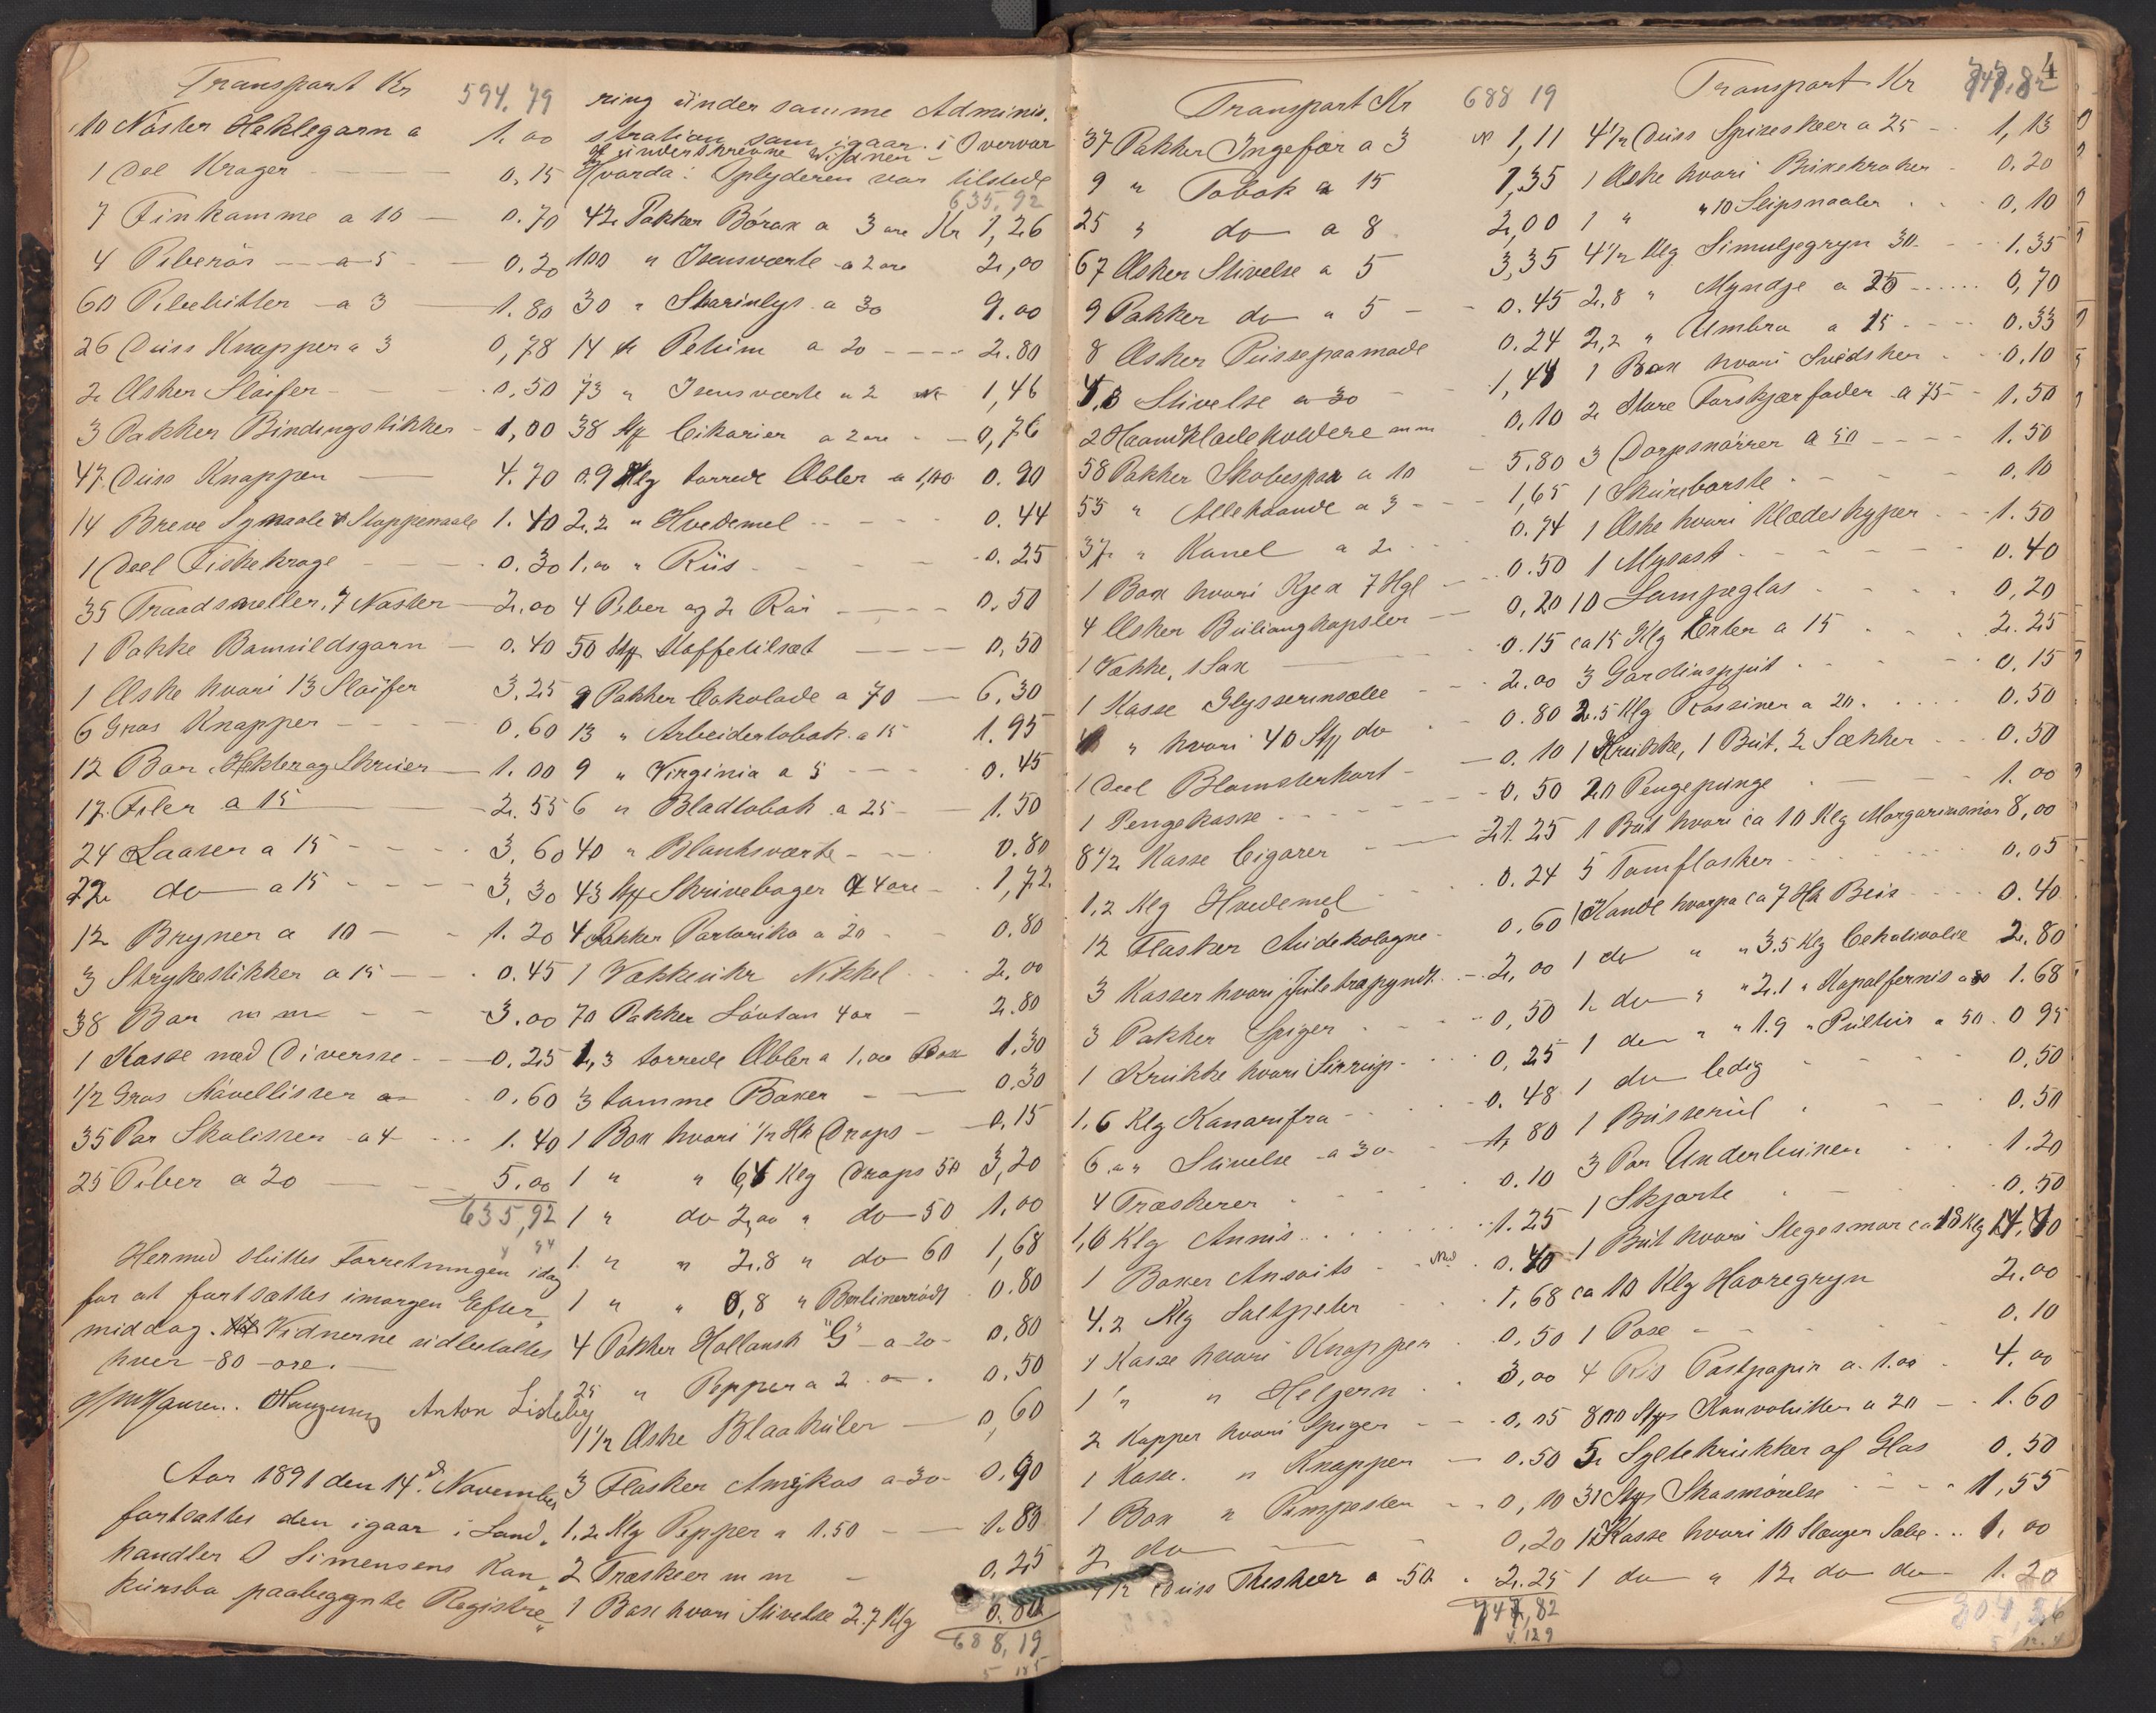 Transport Kr 594.79
10 Nøster Heklegarn a 1.00
1 Del Krager 0.15
7 Finkamme a 10 0.70
4 Piberør a 5 0.20
60 Pibehitler a 3 1.80
26 Duss Knapper a 3 0,78
2 Æsker Sløifer 0,50
3 Pakker Bindingstikker 1,00
47 Duss Knapper 4.70
14 Breve Synaale & Stappenaale 1.40
1 Deel Fiskekroge 0.30
35 Traadsneller, 7 Nøster 2,00
1 Pakke Bomuldsgarn 0.40
1 Æske hvori 13 Sløifer 3.25
6 Gros Knapper 0.60
12 Bor, Hekler og Skruer 1.00
17 Filer a 15 2.55
24 Laaser a 15 3.60
22 do a 15 3,30
12 Bryner a 10 1.20
3 Strykestikker a 15 0.45
38 Bor m m 3.00
1 Kasse med Diversse 0.25
1/2 Gros Støvellisser 0.60
35 Par Skolisser a 4 1.40
25 Piber a 20 5.00
635,92
Hermed sluttes Forretningen idag
for at fortsættes imorgen Efter„
middag. Vidnerne udbetaltes
hver 80 øre.
Anton Lisleby
Aar 1891 den 14d November
fortsattes den igaar i Land„
handler O Simensens Kon„
kursbo paabegynte Registre„
ring under samme Adminis.
stration som igaar i Overvær
af underskrevne Vidner
Hvorda: Oplyderen var tilstede
635.92
42 Pakker Borax a 3 øre Kr 1,26
100 " Ivensværte a 2 øre 2,00
30 " Stearinlys a 30 9.00
14 Pakker Pelum a 20 2.80
73 " Ivensværte a 2 1,46
38 Stk Cikorier a 2 øre 0,76
0.9 Klg tørrede Æbler a 1,00 0.90
2.2 " Hvedemel 0.44
1.00 " Riis 0.25
4 Piber og 2 Rør 0.50
50 Stk Kaffetilsæt 0,50
9 Pakker Cokolade a 70 6.30
13 " Arbeidertobak a 15 1.95
9 " Virginia a 5 0.45
6 " Bladtobak a 25 1.50
40 " Blanksværte 0.80
43 Stk Skrivebøger a 4 øre 1,72
4 Pakker Portoriko a 20 0.80
1 Vækkeuhr Nikkel 2.00
70 Pakker Løvtan 4 ør 2.80
1,3 tørrede Æbler a 1.00 Box 1.30
3 tomme Boxer 0.30
1 Box hvori 1/2 Hk Drops 0.15
1 " " 6,4 Klg Drops 50 3,20
1 " do 2,00 " do 50 1.00
1 " " 2.8 " do 60 1,68
1 " " 0,8 " Berlinerrødt 0.80
4 Pakker Hollansk "G" a 20 0,80
25 " Pepper a 2 0.50
1 1/2 Æske Blaakuler 0,60
3 Flasker Amykos a 30 0.90
1.2 Klg Pepper a 1.50 1.80
2 Træskeer m m 0,25
1 Box hvori Stivelse 2.7 Klg 0.80
688,19
Transport Kr 688 19
37 Pakker Ingefær a 3 1,11
9 " Tobak a 15 1,35
25 " do a 8 2,00
67 Æsker Stivelse a 5 3,35
9 Pakker do a 5 0.45
8 Æsker Pudsepaamade 0.24
4,8 Stivelse a 30 1,44
2 Haandklædeholdere m m 0,10
58 Pakker Skobespar a 10 5.80
55 " Allehaande a 3 1,65
37 " Kanel a 2 0.74
1 Box hvori Kjex 7 Hgl 0.50
4 Æsker Buliongkapsler 0,20
1 Vække, 1 Sax 0.15
1 Kasse Glysserinsæbe 2.00
1 " hvori 40 Stk do 0.80
1 Deel Blomsterkort 0.10
1 Pengekasse 0,50
8 1/2 Kasse Cigarer 21.25
1,2 Klg Hvedemel 0.24
12 Flasker Audekologne 0,60
3 Kasser hvori Juletræpynt 2,00
3 Pakker Spiger 0,50
1 Krukke hvori Sirrup 0,25
1.6 Klg Kanarifrø 0.48
6.00 Stivelse a 30 1,80
4 Træskeer 0.10
1,6 Klg Annis 1.25
1 Boxer Ansoits 0.40
4.2 Klg Saltpeter 1.68
1 Kasse hvori Knapper 0,50
1 " " Helgern 3,00
2 Kopper hvori Spiger 0,05
1 Kasse " Knapper 0.50
1 Box " Pimpesten 0,10
2 do 0,20
4 1/2 Duss Theskeer a 50 2.25
747,82
Transport Kr 747,82
4
4 1/2 Duss Spiseskeer a 25 1,13
1 Æske hvori Buxekroker 0.20
1 " " 10 Slipsnaaler 0,10
4 1/2 Klg Simuljegryn 30 1.35
2.8 " Myndje a 25 0,70
2,2 " Umbra a 15 0.33
1 Box hvori Svedsker 0,10
2 Store Forskjærfader a 75 1.50
3 Dorpsnører a 50 1.50
1 Skurebørste 0.10
1 Æske hvori Klædeshyper 1.50
1 Mysost 0.40
10 Lampeglas 0,20
ca 15 Klg Erter a 15 2.25
3 Gardinspyd 0,15
2.5 Klg Rossiner a 20 0.50
1 Krukke, 1 But, 2 Sækker 0.50
20 Pengepunge 1.00
1 But hvori ca 10 Klg Margarinsmør 8,00
5 Tomflasker 0.05
1 Kande hvorpa ca 7 Hk Beis 0.40
1 do " " 3.5 Klg Cekativolie 2.80
1 do " " 2.1 " Kopalfernis a 80 1.68
1 do " " 1.9 " Pulitur a 50 0 95
1 do ledig 0,50
1 Busserul 0.50
3 Par Underbuxer 1.20
1 Skjorte 0.50
1 But hvori Stegesmør ca 18 Klg 14,40
ca 10 Klg Havregryn 2.00
1 Pose 0.10
4 Ris Postpapir a 1.00 4.00
800 Styk Konvolutter a 20 1.60
5 Syltekrukker af Glas 0.50
31 Styk Skosmørelse 1,55
1 Kasse hvori 10 Stænger Sæbe 1.00
1 do " 12 do do 1.20